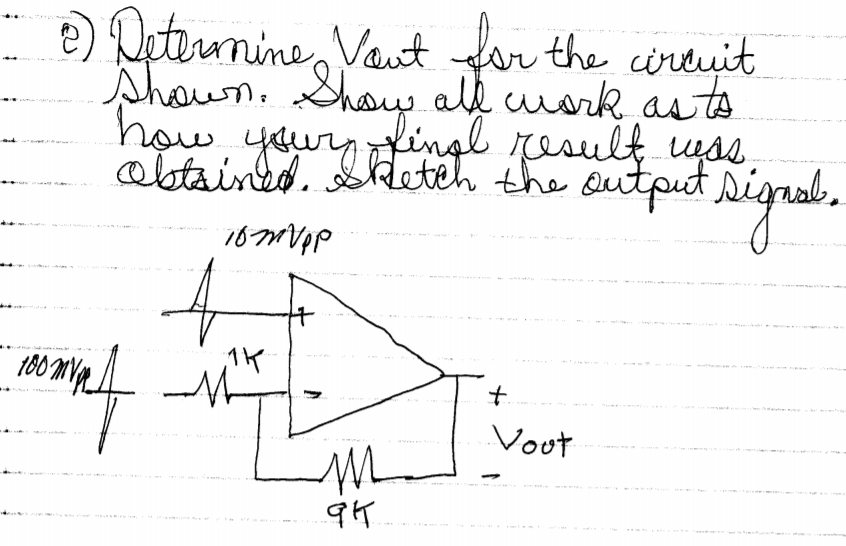 2) Determine Vout for the circuit
shown. Show all work as to
how your final result was
obtained. Sketch the output signal.
10mVpp
+
100mVpp
1K
-
+
Vout
-
9K